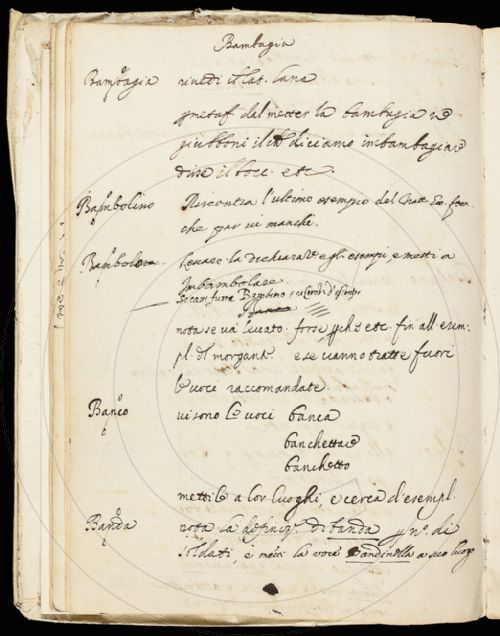 Bambagia
Bambagia rivedi il lat. lana
p metaf. dal metter la bambagia ne
giubboni il che diciamo imbambagiare
disse il bocc. etc.
Bambolino Riscontra l'ultimo esempio del
che par vi manchi.
Bambolore Levare la dechiaraz.e e gli esempi e metti a
Imbambolare.
Bambino
nota se va levato forse etc. fin all'esem:
pl. del morgante. e se vanno tratte fuori
le voci raccomandate.
Banco vi sono le voci banca
banchettare
banchetto
mettile a lor luoghi, e cerca d'esempl.
Banda nota la definiz.e di banda p n.o di
soldati, e metti la voce bandinella a suo luogo